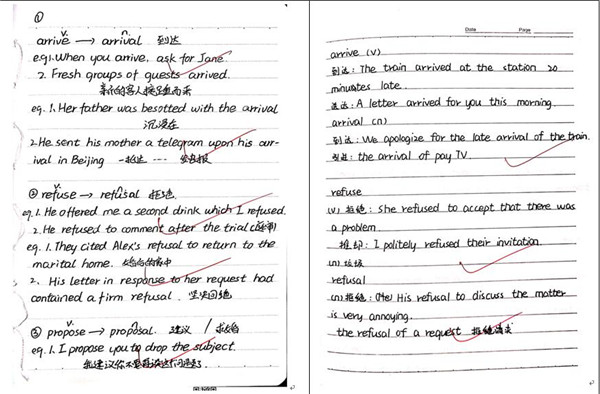 ①
v. n.
arrive → arrival 到达
eg1. When you arrive, ask for Jane.
2. Fresh groups of guests arrived.
eg. 1. Her father was besotted with the arrival
沉浸在
2. He sent his mother a telegram upon his arr-
ival in Beijing 一抵达 ---- 发电报
② refuse → refusal 拒绝
eg. 1. He offered me a second drink which I refused.
2. He refused to comment after the trial
eg. 1. They cited Alex's refusal to return to the
marital home.
2. His letter in response to her request had
contained a firm refusal. 坚决回绝
③ propose → proposal. 建议 /
eg. 1. I propose you to drop the subject.
我建议你不要再谈这个问题了
Date Page
arrive (v)
到达: The train arrived at the station 20
minuates late.
送达: A letter arrived for you this morning
arrival (n)
到达: We apologize for the late arrival of the train.
引进: the arrival of pay TV.
refuse
(v) 拒绝: She refused to accept that there was
a problem.
推却: I politely refused their invitation.
(n) 垃圾
refusal
(n) 拒绝: (He) His refusal to discuss the matter
is very annoying.
the refusal of a request 拒绝请求